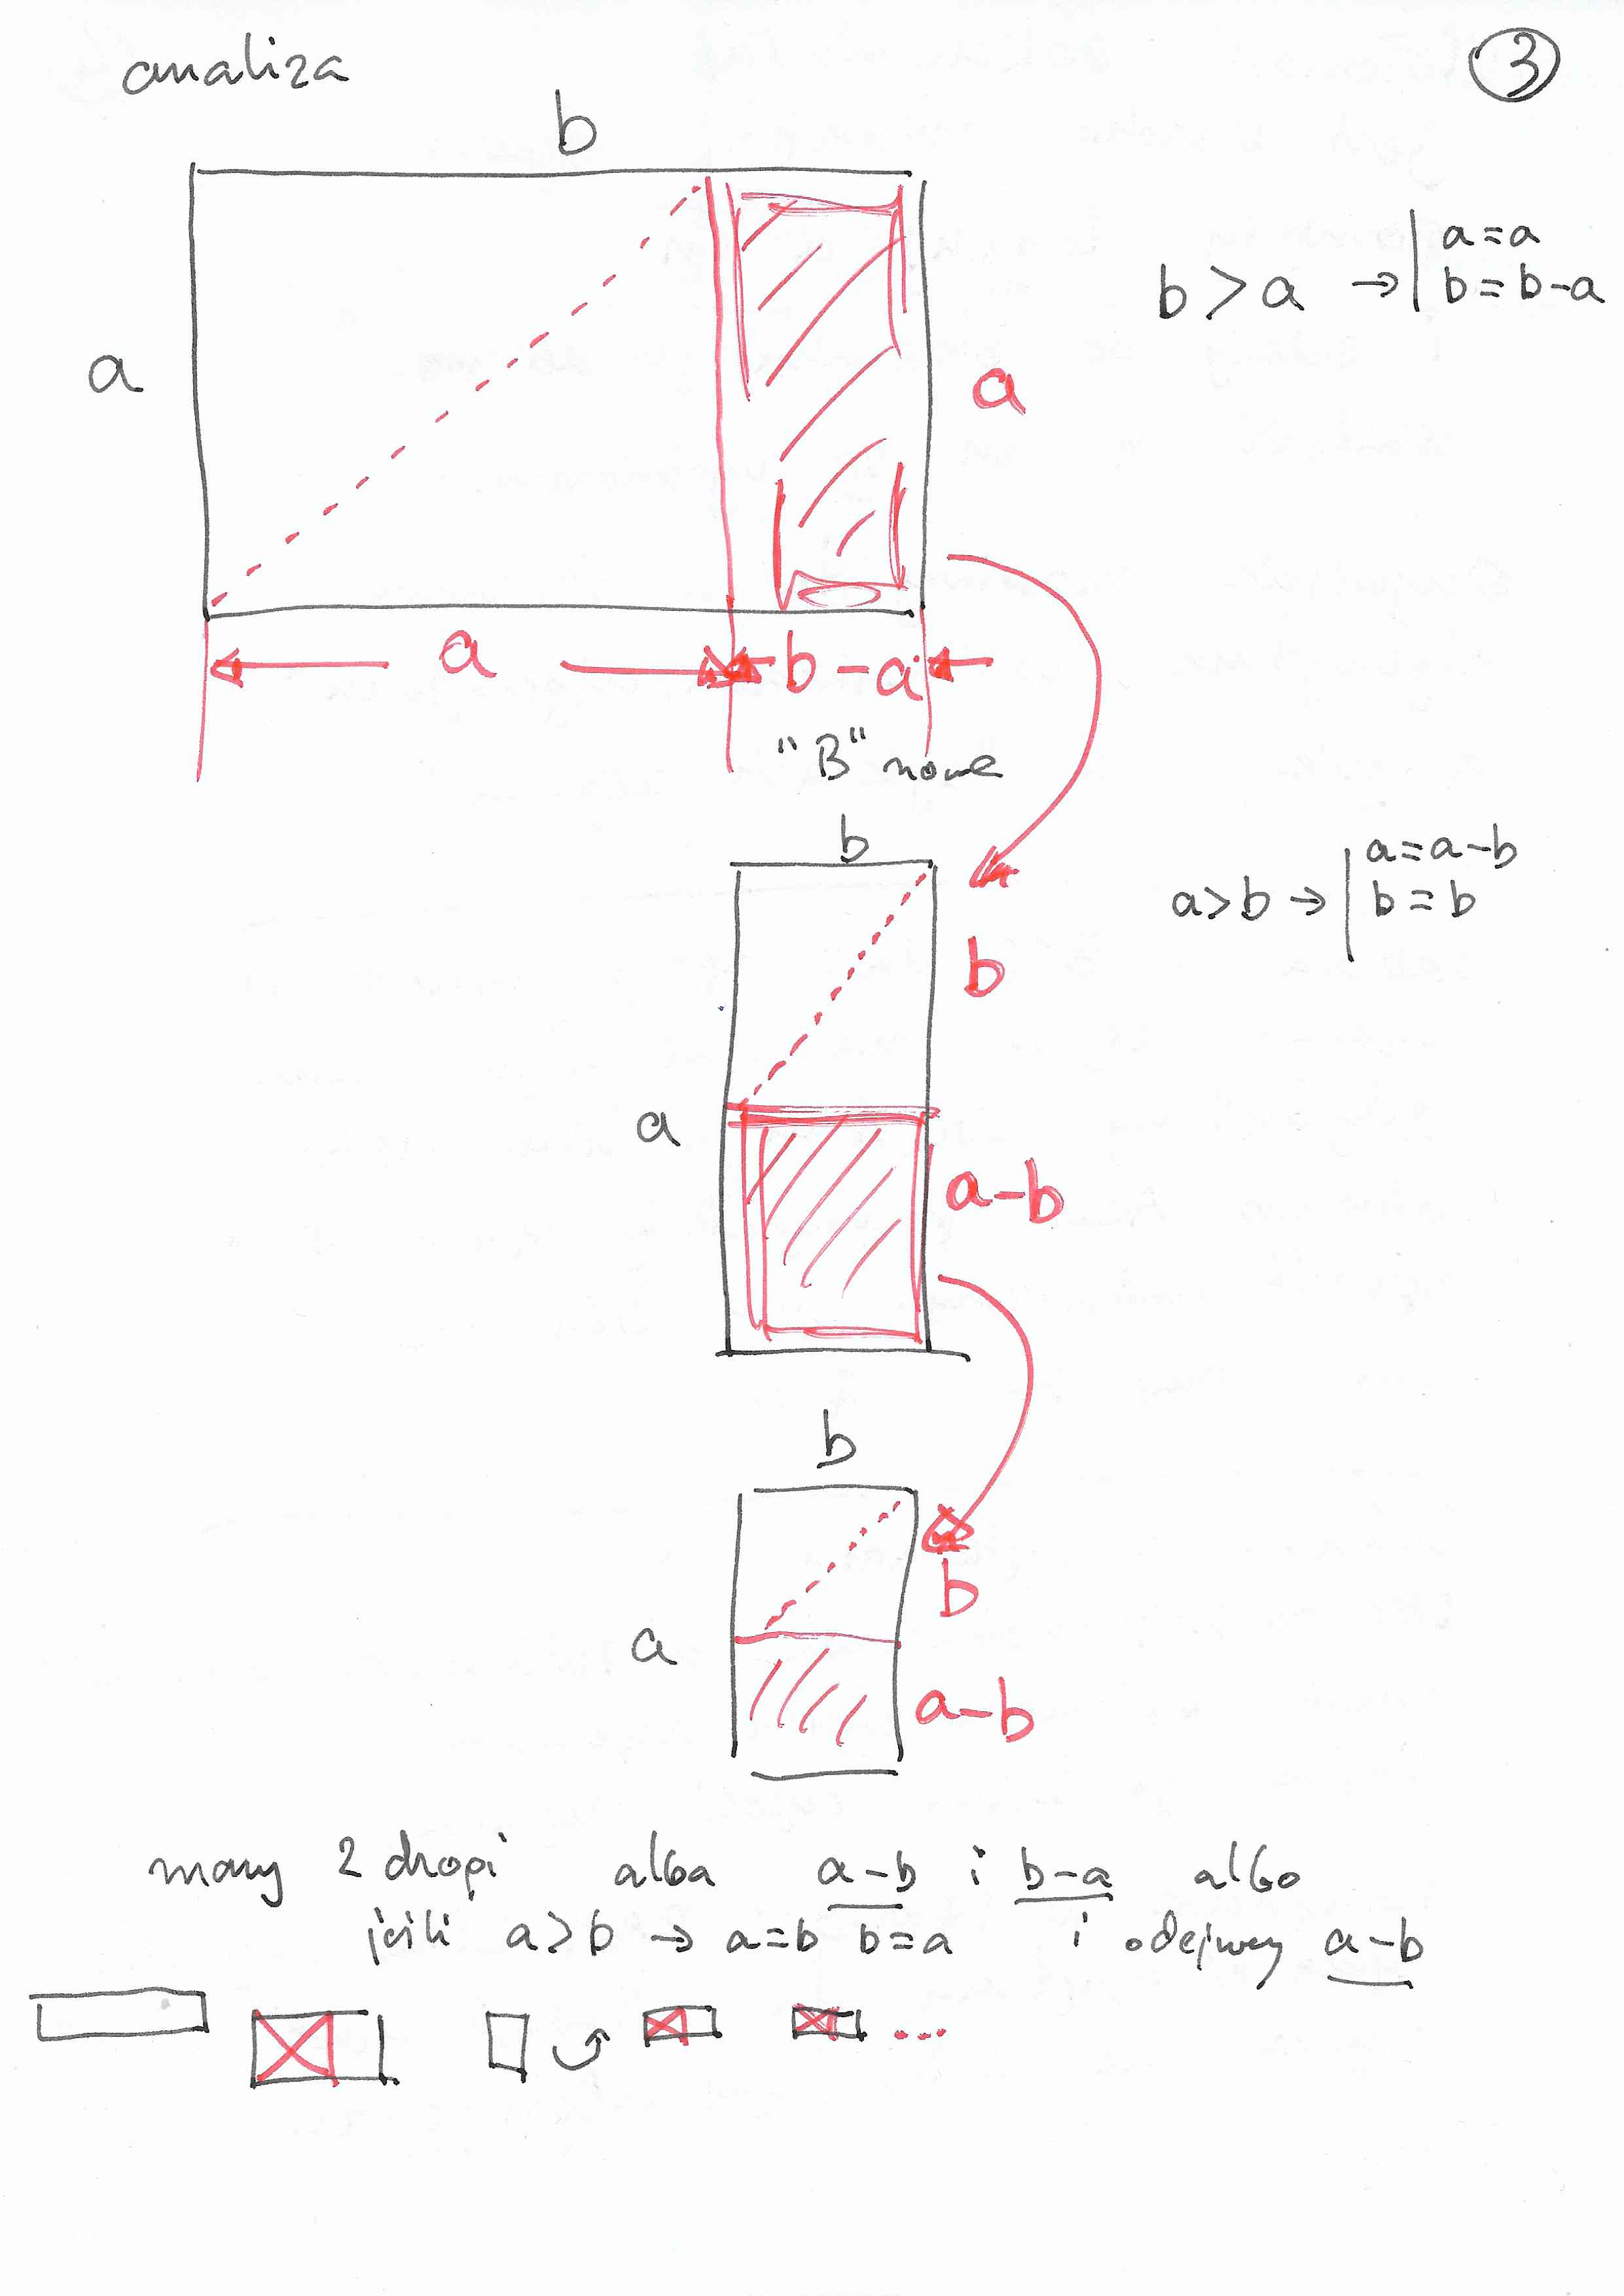 analiza
3
b
a
b > a → | a = a
b = b-a
a
a
b-a
"B" nowe
b
a > b → | a = a-b
b = b
b
a
a-b
b
b
a
a-b
mamy 2 drogi albo a-b i b-a albo
jeśli a > b → a = b b = a i odejmujemy a-b
...